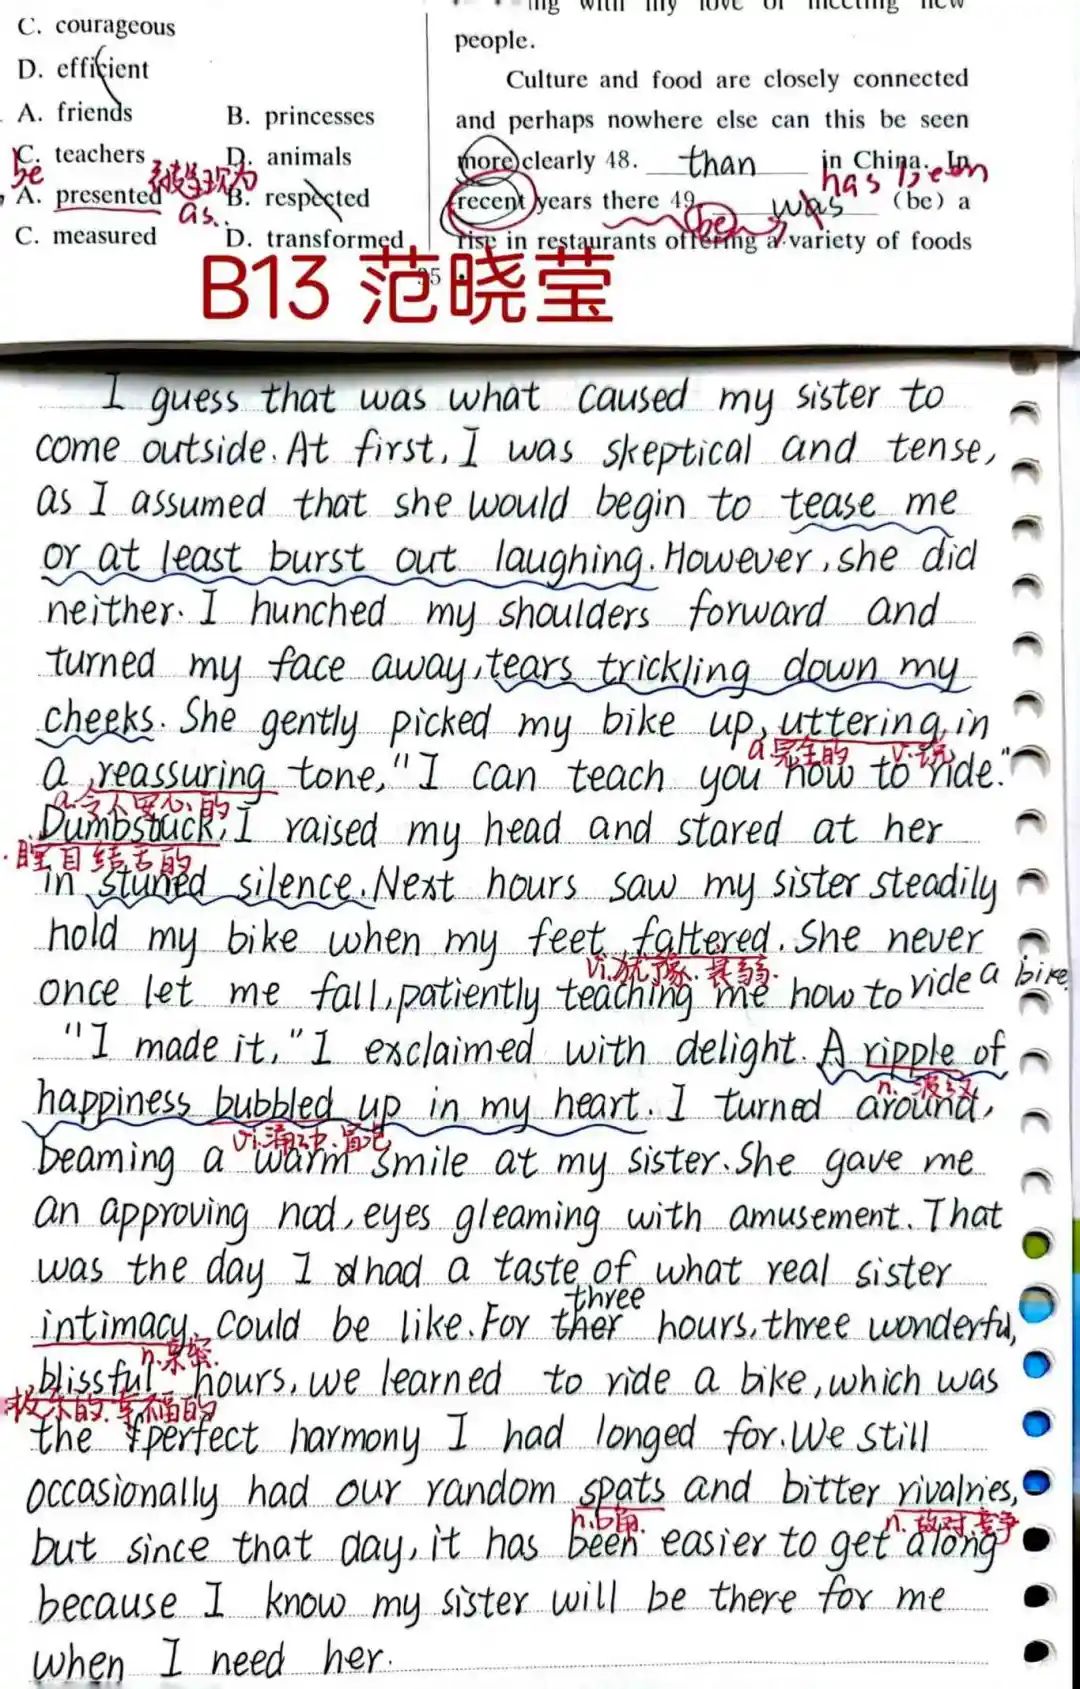 C. courageous
D. efficient
A. friends B. princesses
C. teachers D. animals
be
被呈现为
A. presented B. respected
as..
C. measured D. transformed
people.
Culture and food are closely connected
and perhaps nowhere else can this be seen
more clearly 48. than in China. In
has been
recent years there 49. was (be) a
be
rise in restaurants offering a variety of foods
B13 范晓莹
I guess that was what caused my sister to
come outside. At first, I was skeptical and tense,
as I assumed that she would begin to tease me
or at least burst out laughing. However, she did
neither. I hunched my shoulders forward and
turned my face away, tears trickling down my
cheeks. She gently picked my bike up, uttering, in
a.完全的 v.说
a reassuring tone, "I can teach you how to ride."
a.令人安心的
Dumbstuck, I raised my head and stared at her
瞠目结舌的
in stuned silence. Next hours saw my sister steadily
hold my bike when my feet faltered. She never
vi.犹豫.畏弱.
once let me fall, patiently teaching me how to ride a bike.
"I made it," I exclaimed with delight. A ripple of
n.波纹
happiness bubbled up in my heart. I turned around,
vi.涌动.冒泡
beaming a warm smile at my sister. She gave me
an approving nod, eyes gleaming with amusement. That
was the day I had a taste of what real sister
three
intimacy could be like. For ther hours, three wonderful,
n.亲密.
blissful hours, we learned to ride a bike, which was
极乐的.幸福的
the perfect harmony I had longed for. We still
occasionally had our random spats and bitter rivalries,
n.口角. n.敌对.竞争
but since that day, it has been easier to get along
because I know my sister will be there for me
when I need her.